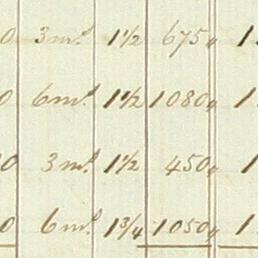 0 3 m.d 1 1/2 675 " 1
0 6 m.d 1 1/2 1080 " 1
0 3 m.d 1 1/2 450 " 1
0 6 m.d 1 3/4 1050 " 1